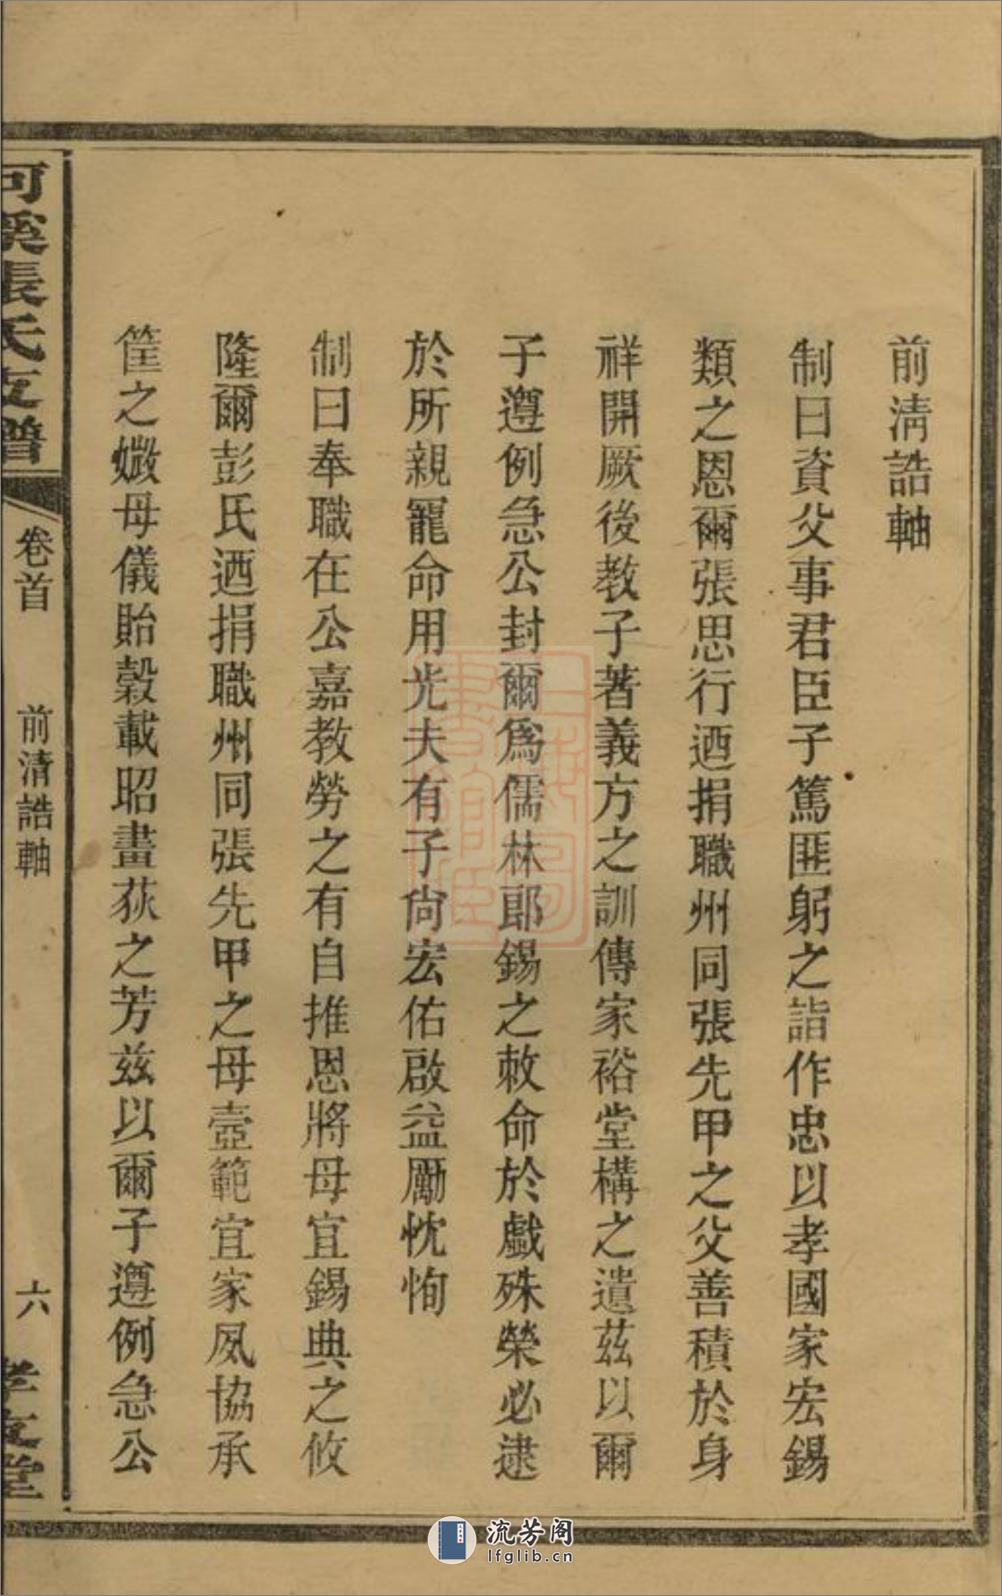 前淸誥軸
制曰資父事君臣子篤匪躬之詣作忠以孝國家宏錫
類之恩爾張思行迺捐職州同張先甲之父善積於身
祥開厥後教子著義方之訓傳家裕堂構之遺茲以爾
子遵例急公封爾爲儒林郎錫之敕命於戲殊榮必逮
於所親寵命用光夫有子尙宏佑啟益勵忱恂
制曰奉職在公嘉教勞之有自推恩將母宜錫典之攸
隆爾彭氏迺捐職州同張先甲之母壼範宜家夙協承
筐之媺母儀貽穀載昭畫荻之芳茲以爾子遵例急公
河溪張氏支譜
卷首
前淸誥軸
六
孝友堂
流芳阁
lfglib.cn